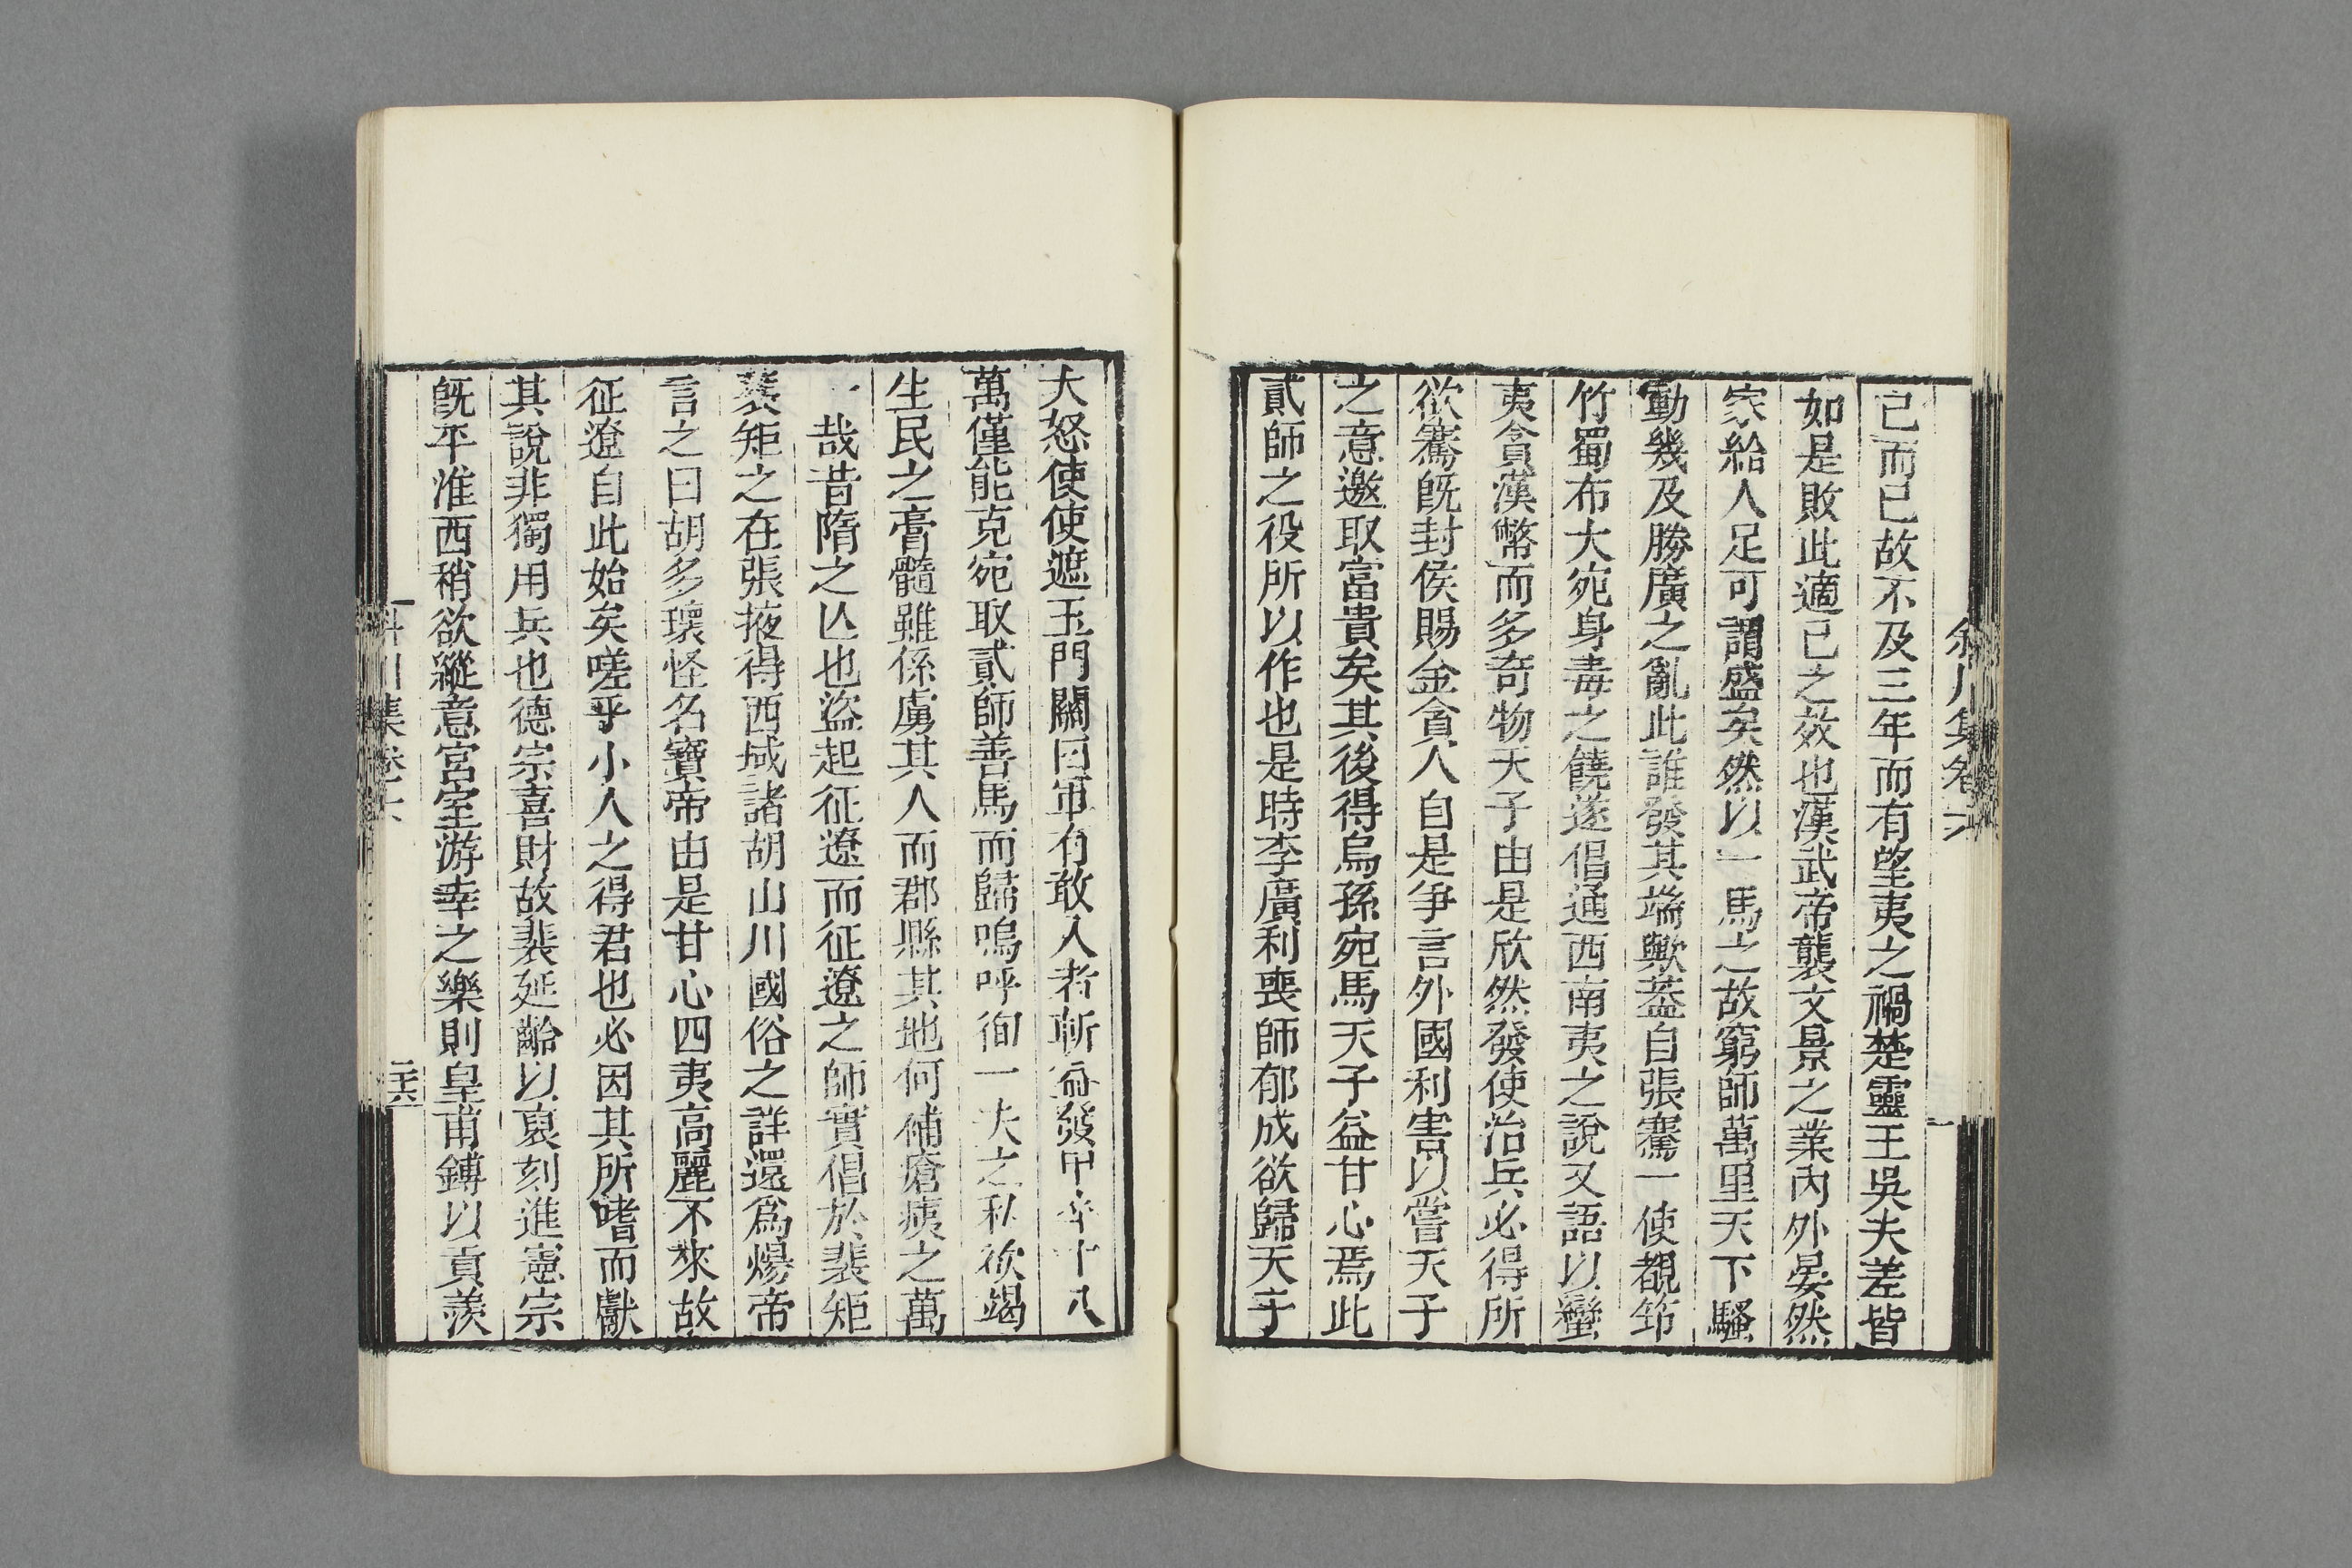 已而已故不及三年而有望夷之禍楚靈王吳夫差皆
如是敗此適已之效也漢武帝襲文景之業內外晏然
家給人足可謂盛矣然以一馬之故窮師萬里天下騷
動幾及勝廣之亂此誰發其端歟葢自張騫一使覩筇
竹蜀布大宛身毒之饒遂倡通西南夷之說又語以蠻
夷貪漢幣而多奇物天子由是欣然發使治兵必得所
欲騫旣封侯賜金貪人自是爭言外國利害以嘗天子
之意邀取富貴矣其後得烏孫宛馬天子益甘心焉此
貳師之役所以作也是時李廣利喪師郁成欲歸天子
大怒使使遮玉門關曰軍有敢入者斬益發甲卒十八
萬僅能克宛取貳師善馬而歸嗚呼徇一夫之私欲竭
生民之膏髓雖係虜其人而郡縣其地何補瘡痍之萬
一哉昔隋之亾也盜起征遼而征遼之師實倡於裴矩
裴矩之在張掖得西域諸胡山川國俗之詳還爲煬帝
言之曰胡多瓌怪名寶帝由是甘心四夷高麗不來故
征遼自此始矣嗟乎小人之得君也必因其所嗜而獻
其說非獨用兵也德宗喜財故裴延齡以裒刻進憲宗
旣平淮西稍欲縱意宮室游幸之樂則皇甫鎛以貢羨
斜川集卷六
二十六